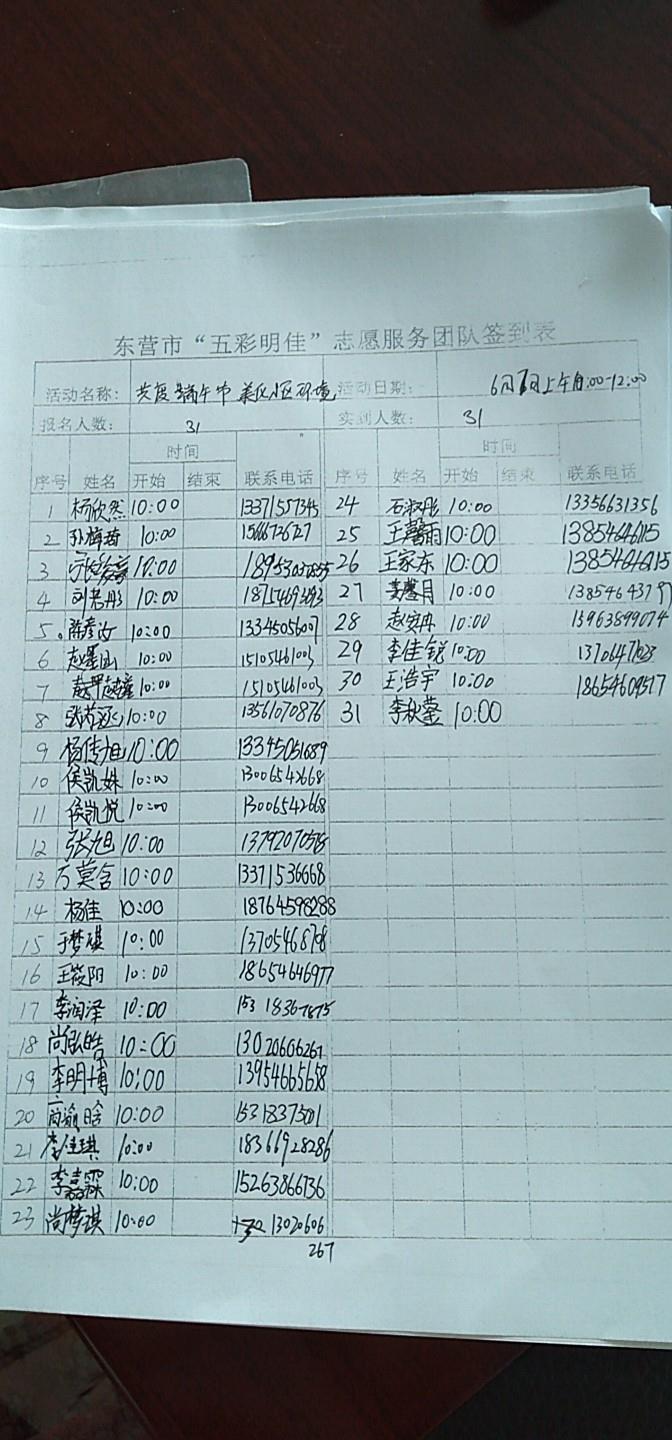 东营市“五彩明佳”志愿服务团队签到表
活动名称: 共度端午节 美化小区环境 活动日期: 6月7日上午10:00-12:00
报名人数: 31 实到人数: 31
时间 时间
序号 姓名 开始 结束 联系电话 序号 姓名 开始 结束 联系电话
1 杨欣然 10:00 13371557345 24 石淑彤 10:00 13356631356
2 孙梓琦 10:00 25 王馨雨 10:00
3 10:00 26 王家东 10:00
4 刘书彤 10:00 27 10:00 13854643797
5 10:00 13345056007 28 赵奕冉 10:00 15963899074
6 10:00 15105461003 29 李佳锐 10:00
7 10:00 15105461003 30 王浩宇 10:00 18654609517
8 10:00 13561070876 31 李秋蓥 10:00
9 杨传旭 10:00 13345051689
10 侯凯姝 10:00 13006542668
11 侯凯悦 10:00 13006542668
12 张旭 10:00
13 万莫含 10:00 13371536668
14 杨佳 10:00 18764598288
15 于梦琪 10:00
16 王筱阳 10:00 18654646977
17 李润泽 10:00 15318367875
18 尚泓皓 10:00 13020606267
19 李明博 10:00 13954665658
20 商瀹晗 10:00 15318375001
21 李佳琪 10:00 18366928286
22 李嘉霖 10:00 15263866736
23 尚梦琪 10:00 13020606
267